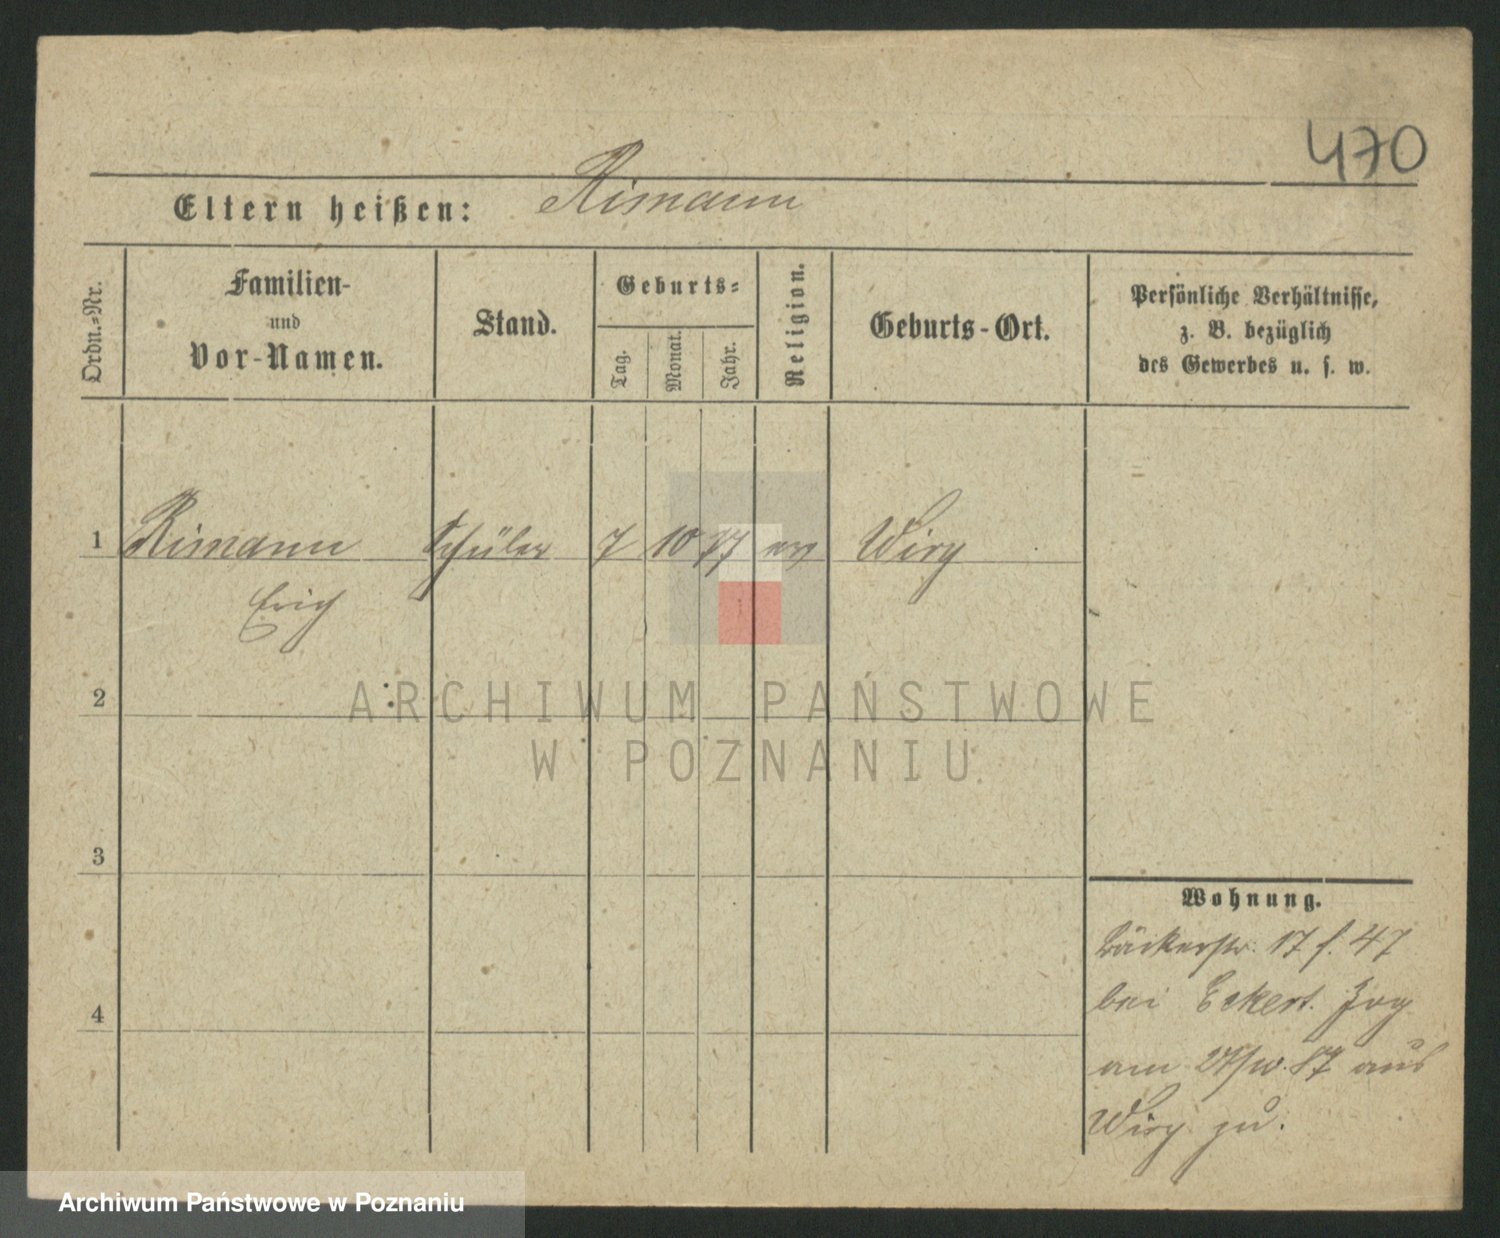 470
Eltern heißen: Rimann
Ordn.=Nr.
Familien-
und
Vor-Namen.
Stand.
Geburts=
Tag.
Monat.
Jahr.
Religion.
Geburts-Ort.
Persönliche Verhältnisse,
z. B. bezüglich
des Gewerbes u. s. w.
1 Rimann Schüler 7 10 77 ev Wirz
Erich
2
3
4
ARCHIWUM PAŃSTWOWE
W POZNANIU
Wohnung.
Bäckerstr. 17 f. 47
bei Eckert. Zog
am 87 aus
Wirz zu.
Archiwum Państwowe w Poznaniu